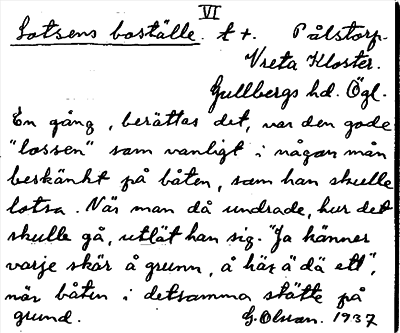 VI
Lotsens boställe. t +. Pålstorp.
Vreta Kloster.
Gullbergs hd. Ögl.
En gång, berättas det, var den gode
"lossen" som vanligt i någon mån
beskänkt på båten, som han skulle
lotsa. När man då undrade, hur det
skulle gå, utlät han sig. "Ja känner
varje skär å grunn, å här ä dä ett",
när båten i detsamma stötte på
grund. G. Olsson. 1937